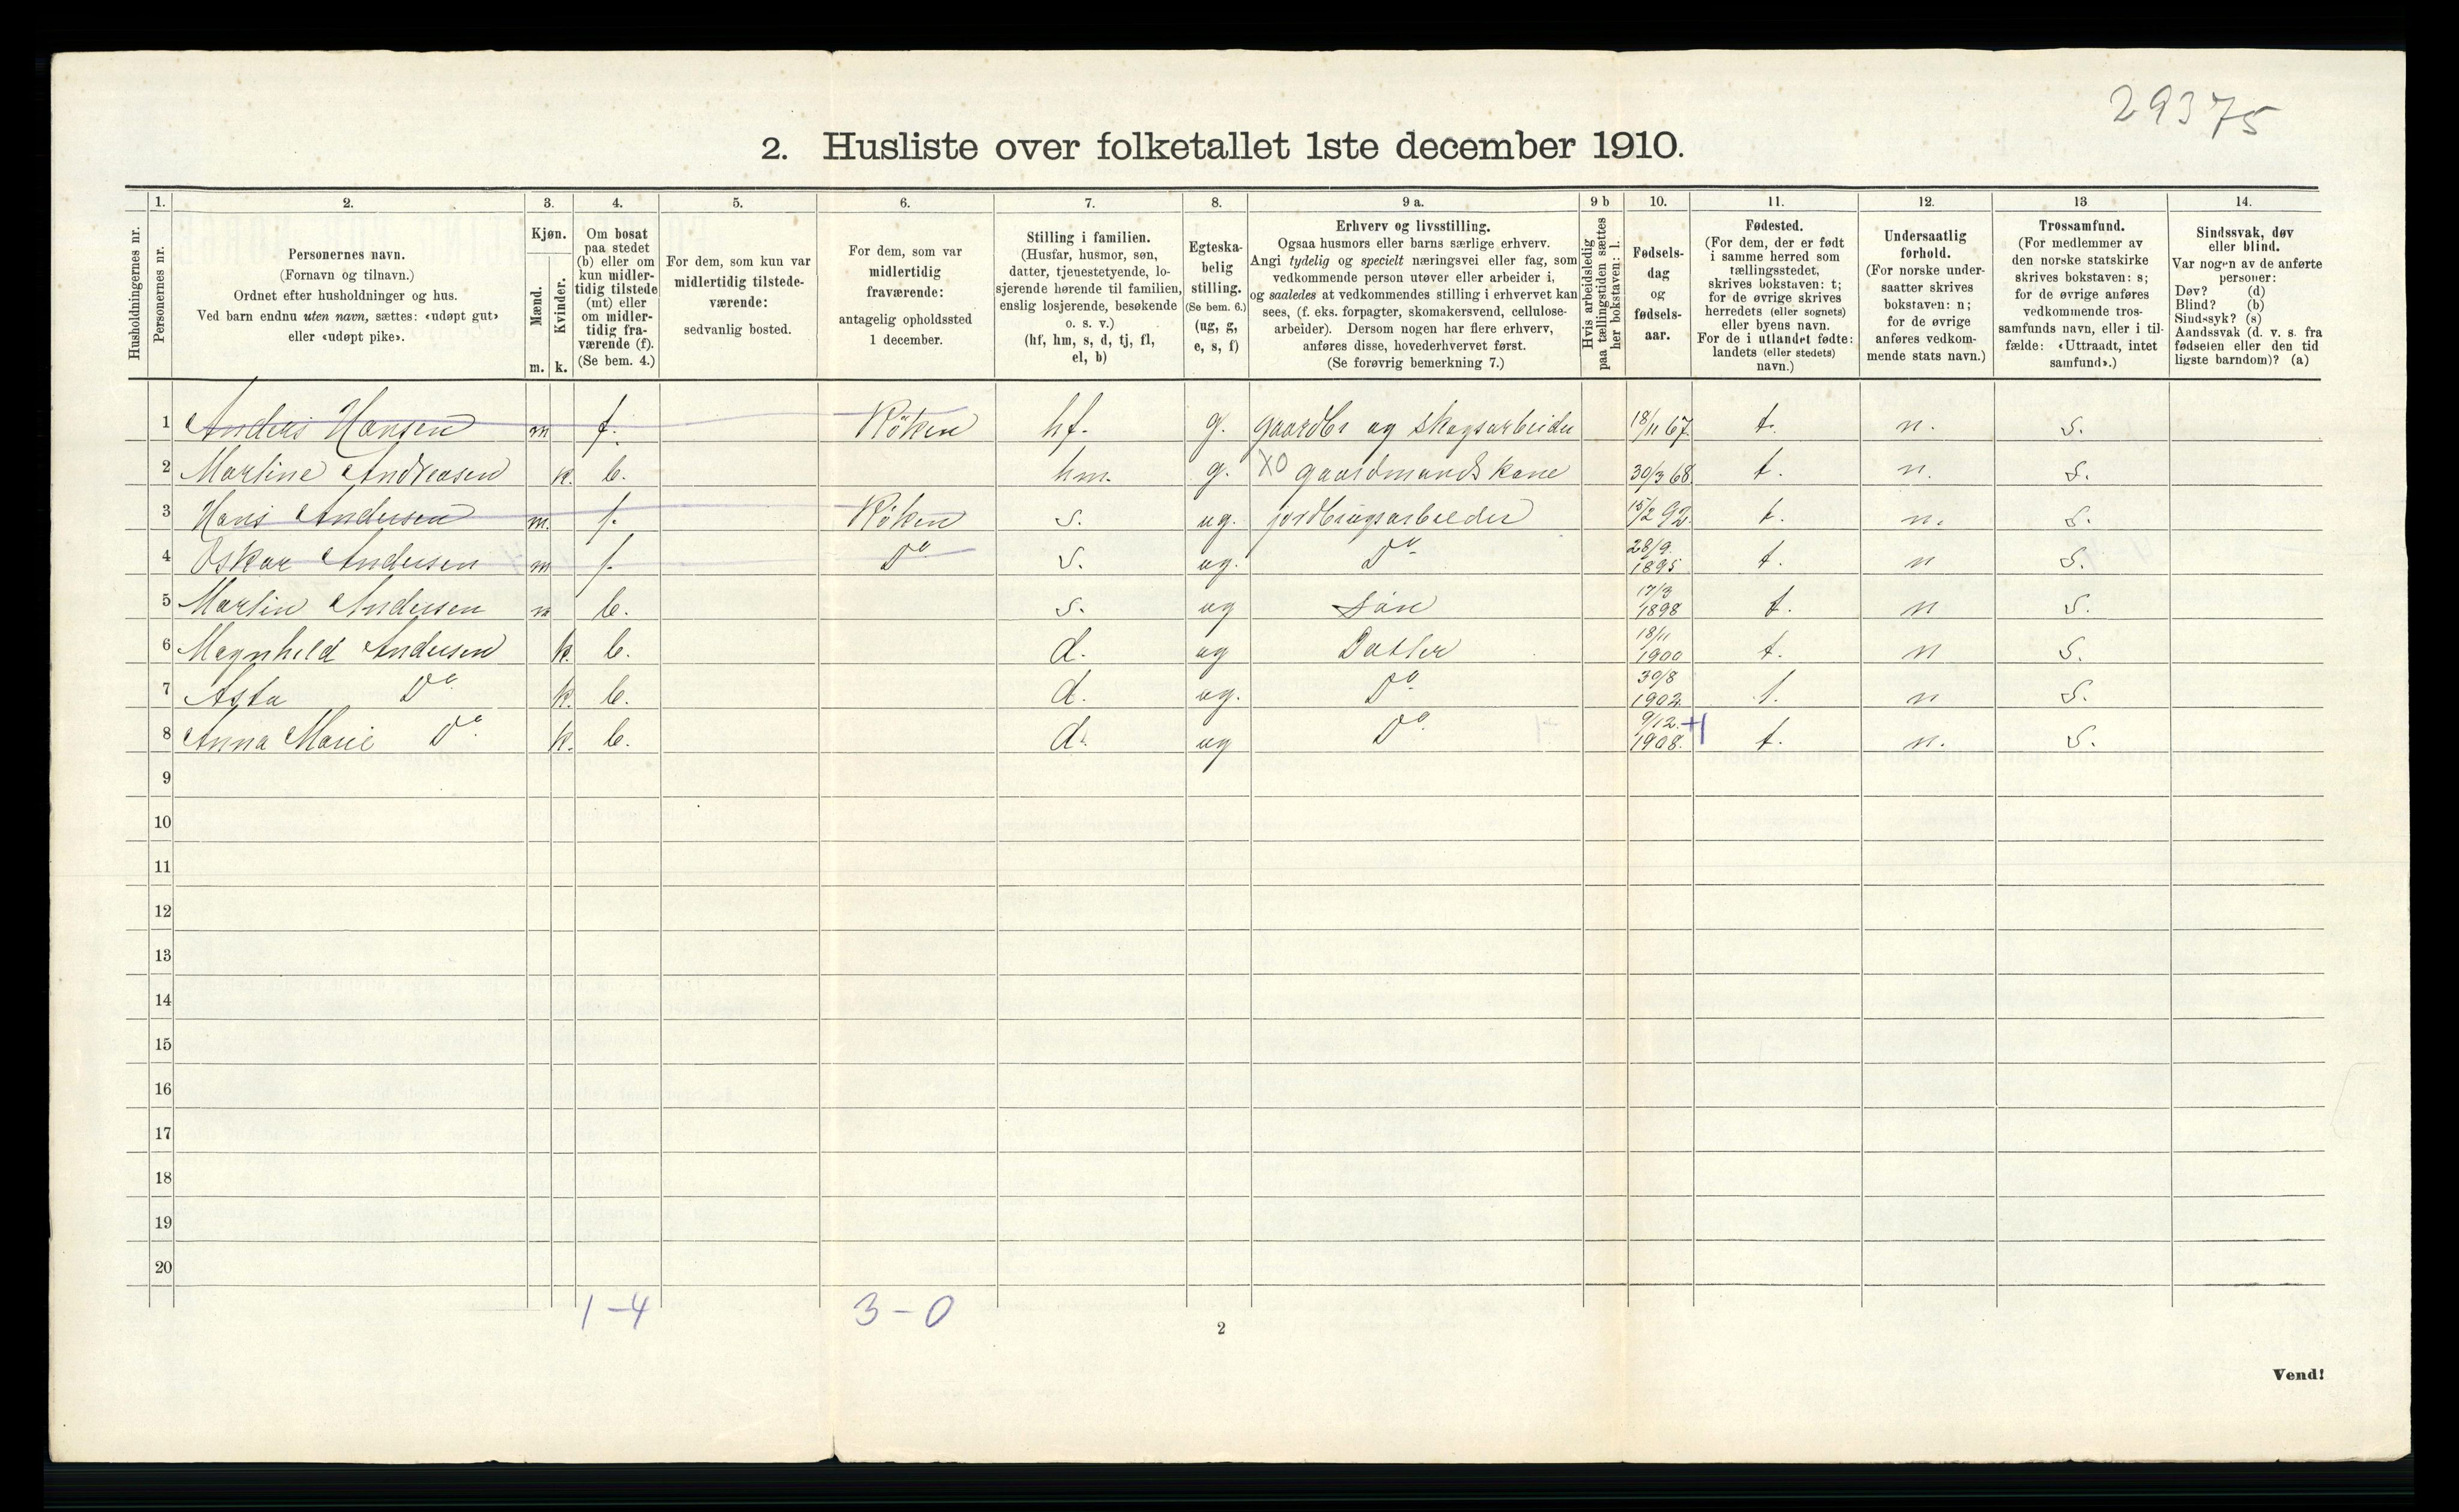 29375
2. Husliste over folketallet 1ste december 1910.
Husholdningernes nr.
1. Personernes nr.
2. Personernes navn.
(Fornavn og tilnavn.)
Ordnet efter husholdninger og hus.
Ved barn endnu uten navn, sættes: «udøpt gut»
eller «udøpt pike».
3. Kjøn.
Mænd. m.
Kvinder. k.
4. Om bosat
paa stedet
(b) eller om
kun midler-
tidig tilstede
(mt) eller
om midler-
tidig fra-
værende (f).
(Se bem. 4.)
5. For dem, som kun var
midlertidig tilstede-
værende:
sedvanlig bosted.
6. For dem, som var
midlertidig
fraværende:
antagelig opholdssted
1 december.
7. Stilling i familien.
(Husfar, husmor, søn,
datter, tjenestetyende, lo-
sjerende hørende til familien,
enslig losjerende, besøkende
o. s. v.)
(hf, hm, s, d, tj, fl,
el, b)
8. Egteska-
belig
stilling.
(Se bem. 6.)
(ug, g,
e, s, f)
9 a. Erhverv og livsstilling.
Ogsaa husmors eller barns særlige erhverv.
Angi tydelig og specielt næringsvei eller fag, som
vedkommende person utøver eller arbeider i,
og saaledes at vedkommendes stilling i erhvervet kan
sees, (f. eks. forpagter, skomakersvend, cellulose-
arbeider). Dersom nogen har flere erhverv,
anføres disse, hovederhvervet først.
(Se forøvrig bemerkning 7.)
9 b Hvis arbeidsledig
paa tællingstiden sættes
her bokstaven: l.
10. Fødsels-
dag
og
fødsels-
aar.
11. Fødested.
(For dem, der er født
i samme herred som
tællingsstedet,
skrives bokstaven: t;
for de øvrige skrives
herredets (eller sognets)
eller byens navn.
For de i utlandet fødte:
landets (eller stedets)
navn.)
12. Undersaatlig
forhold.
(For norske under-
saatter skrives
bokstaven: n;
for de øvrige
anføres vedkom-
mende stats navn.)
13 Trossamfund.
(For medlemmer av
den norske statskirke
skrives bokstaven: s;
for de øvrige anføres
vedkommende tros-
samfunds navn, eller i til-
fælde: «Uttraadt, intet
samfund».)
14. Sindssvak, døv
eller blind.
Var nogen av de anførte
personer:
Døv? (d)
Blind? (b)
Sindssyk? (s)
Aandssvak (d. v. s. fra
fødselen eller den tid
ligste barndom)? (a)
1 Anders Hansen m f. Röken hf. g. gaardbr og skogsarbeider 18/11 67. t. n. s.
2 Martine Andreasen k. b. hm. g. XO gaardmands kone 30/3 68. t. n. s.
3 Hans Andersen m. f. Röken s. ug. jordbrugsarbeider 15/2 92. t. n. s.
4 Oskar Andersen m f. Do s. ug. Do 28/9. 1895 t. n s.
5 Martin Andersen m b. s. ug Søn 17/3 1898 t. n s.
6 Magnhild Andersen k. b. d. ug Datter 18/11 1900 t. n s.
7 Asta Do k. b. d. ug. Do 30/8 1902. t. n s.
8 Anna Marie Do k. b. d. ug Do 9/12. 1908. t. n. s.
9
10
11
12
13
14
15
16
17
18
19
20
1-4 3-0
2
Vend!